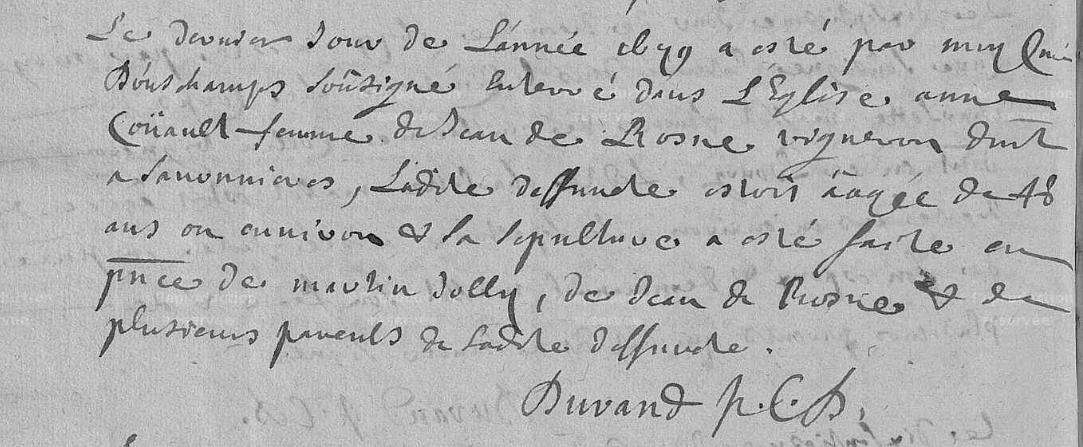 Le dernier Jour de L'année 1699 a esté par moy Curé
Deschamps soûsigné Enterré dans L'Eglise anne
Coüault femme de Jean de Rosne vigneron dmt
a Savonnieres, Ladite deffuncte estoit aagée de 48
ans ou environ & sa sepulture a esté faite en
pnce de martin Jolly, de Jean de Rosne & de
plusieurs parents de Ladite deffuncte.
Durand p. C. D.